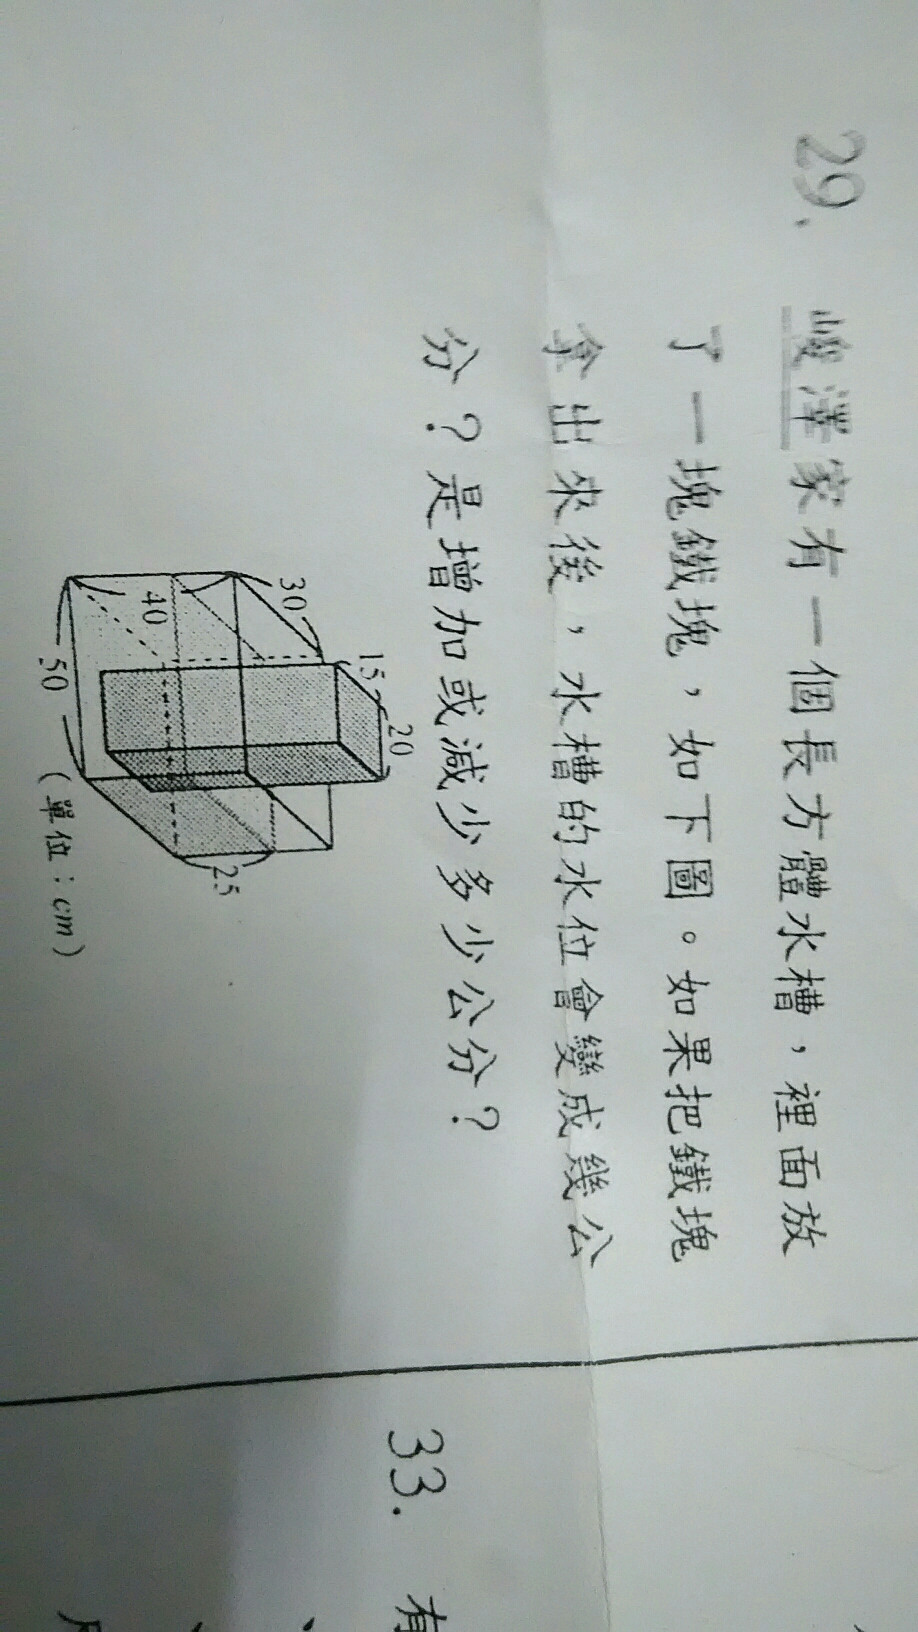 29. 峻澤家有一個長方體水槽，裡面放
了一塊鐵塊，如下圖。如果把鐵塊
拿出來後，水槽的水位會變成幾公
分？是增加或減少多少公分？
15
20
30
40
25
50
（單位：cm）
33. 有